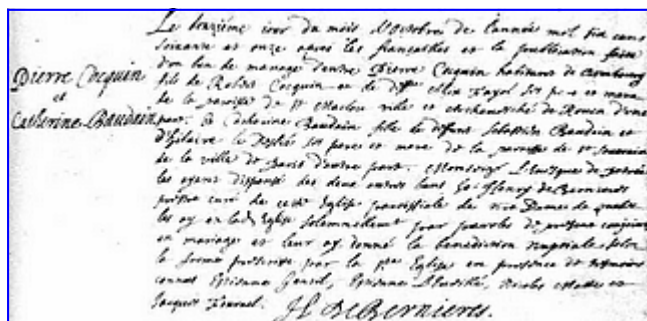 Pierre Cocquin
et
Catherine Baudain
Le douziéme jour du mois d'Octobre de l'année mil six cens
soixante et onze apres les fiançailles et la publication faite
d'un ban de mariage d'entre Pierre Cocquin habitant de
fils de Robert Cocquin et de Fayol ses pere et mere
de la paroisse de St Maclou ville et Archevesché de Rouen d'une
part, Et Catherine Baudain fille de deffunt Sebastien Baudain et
d'Hilaire ses peres et mere de la paroisse de St
de la ville de Paris d'autre part. Monseigr L'Evesque de
les ayant dispensé des deux autres bans Je Henry de Bernieres
prestre curé de cette Eglise paroissiale de Dame de
les ay en lad. Eglise solemnellement par paroles de present conjoint
en mariage et leur ay donné la benediction nuptiale selon
la forme prescrite par la Eglise en presence de tesmoins
connus Estienne, Estienne, Nicolas et
Jacques Fournel. H. De Bernieres.